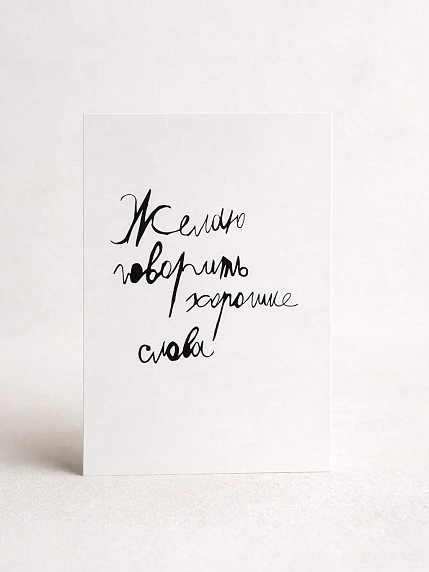 Желаю
говорить
хорошие
слова